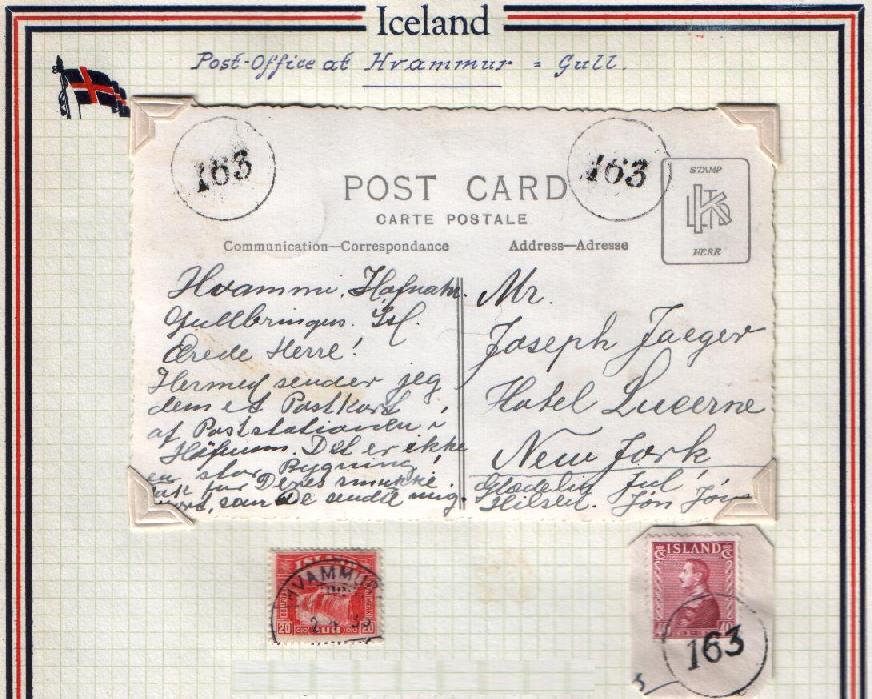 Iceland
Post-Office at Hvammur = Gull.
163
163
POST CARD
CARTE POSTALE
Communication—Correspondance
Address—Adresse
STAMP
HERE
Hvammi, Höfnum.
Gullbringus. Ísl.
Ærede Herre!
Hermed sender jeg
dem et Postkort
af Poststationen i
Höfnum. Det er ikke
en stor Bygning!
Tak for Deres smukke
som De sendte mig.
Mr.
Joseph Jaeger
Hotel Lucerne
New York
Glædelig Jul!
Hilsen. Jón Jóns
ÍSLAND
HVAMMUR
20
20
ÍSLAND
40
163